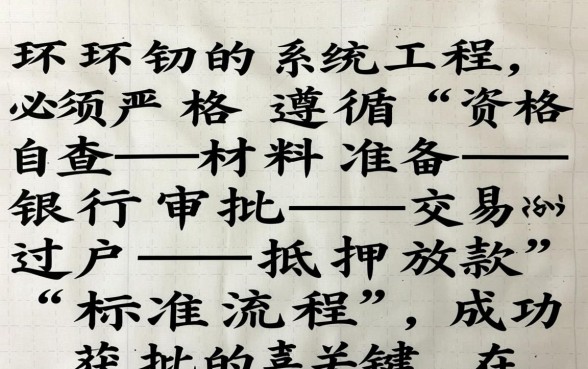 环环钏的系统工程，
必须严格 遵循“资格
自查——材料准备——
银行审批——交易
过户——抵押放款”
“标准流程”，成功
获批的 关键 在